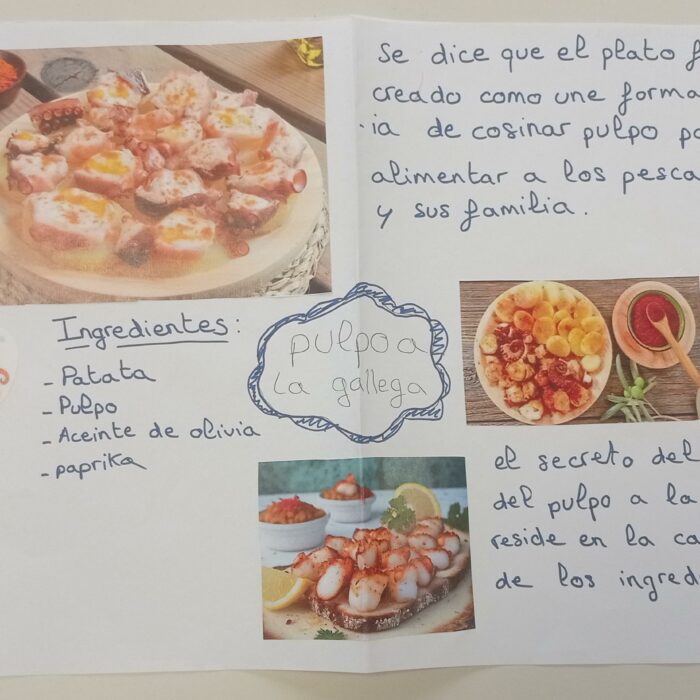 Se dice que el plato f
creado como une forma
ia de cosinar pulpo p
alimentar a los pesca
y sus familia.
Ingredientes:
- Patata
- Pulpo
- Aceinte de olivia
- paprika
pulpo a
La gallega
el secreto del
del pulpo a la
reside en la ca
de los ingred